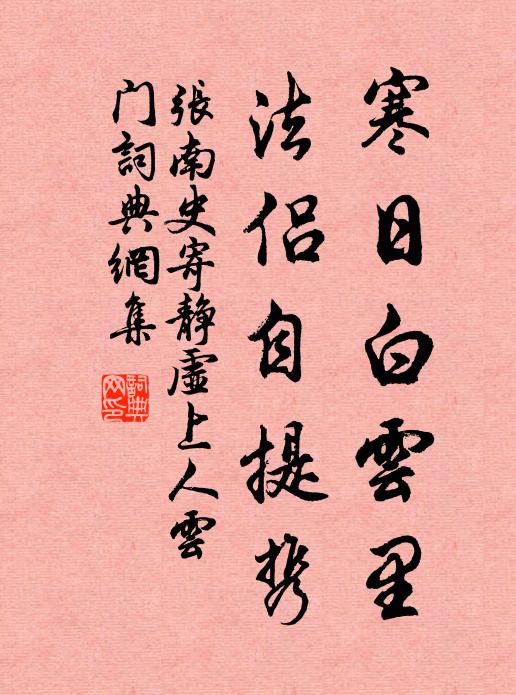 寒日白雲里
法侣自提携
張南史寄静虚上人雲
门詞典網集
詞典
网印